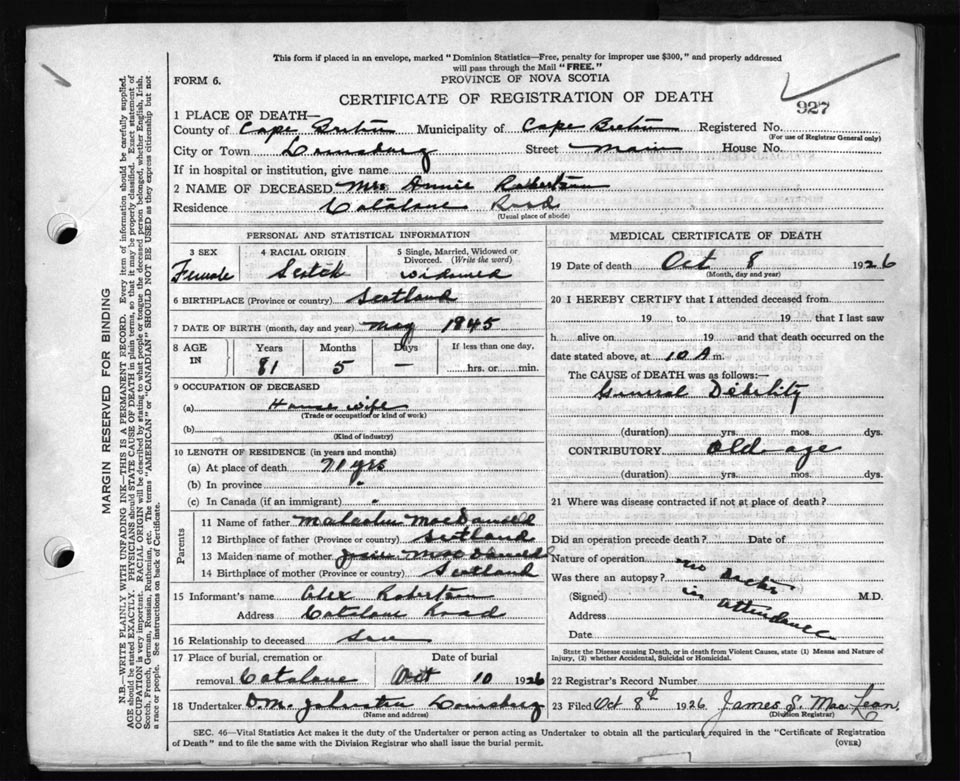 This form if placed in an envelope, marked "Dominion Statistics—Free, penalty for improper use $300," and properly addressed
will pass through the Mail "FREE."
FORM 6.
PROVINCE OF NOVA SCOTIA
CERTIFICATE OF REGISTRATION OF DEATH
927
1 PLACE OF DEATH—
County of Cape Breton Municipality of Cape Breton Registered No.
(For use of Registrar General only)
City or Town Louisburg Street Main House No.
If in hospital or institution, give name
2 NAME OF DECEASED Mrs Annie Robertson
Residence Catalone Road
(Usual place of abode)
PERSONAL AND STATISTICAL INFORMATION
3 SEX Female
4 RACIAL ORIGIN Scotch
5 Single, Married, Widowed or Divorced. (Write the word) Widowed
6 BIRTHPLACE (Province or country) Scotland
7 DATE OF BIRTH (month, day and year) May 1845
8 AGE IN Years Months Days If less than one day,
81 5 — hrs. or min.
9 OCCUPATION OF DECEASED
(a) House wife
(Trade or occupation or kind of work)
(b)
(Kind of industry)
10 LENGTH OF RESIDENCE (in years and months)
(a) At place of death 71 yrs
(b) In province "
(c) In Canada (if an immigrant) "
Parents
11 Name of father Malcolm MacDonald
12 Birthplace of father (Province or country) Scotland
13 Maiden name of mother MacDonald
14 Birthplace of mother (Province or country) Scotland
15 Informant's name Alex Robertson
Address Catalone Road
16 Relationship to deceased Son
17 Place of burial, cremation or removal Catalone
Date of burial Oct 10 1926
18 Undertaker D.M. Johnston Louisburg
(Name and address)
MEDICAL CERTIFICATE OF DEATH
19 Date of death Oct 8 1926
(Month, day and year)
20 I HEREBY CERTIFY that I attended deceased from
19 to 19 that I last saw
h alive on 19 and that death occurred on the
date stated above, at 10 A m.
The CAUSE of DEATH was as follows:—
General Debility
(duration) yrs. mos. dys.
CONTRIBUTORY old age
(duration) yrs. mos. dys.
21 Where was disease contracted if not at place of death?
Did an operation precede death? Date of
Nature of operation
Was there an autopsy? no Doctor
(Signed) in attendance M.D.
Address
Date
State the Disease causing Death, or in death from Violent Causes, state (1) Means and Nature of
Injury, (2) whether Accidental, Suicidal or Homicidal.
22 Registrar's Record Number
23 Filed Oct 8th 1926 James S. MacLean
(Division Registrar)
SEC. 46—Vital Statistics Act makes it the duty of the Undertaker or person acting as Undertaker to obtain all the particulars required in the "Certificate of Registration
of Death" and to file the same with the Division Registrar who shall issue the burial permit.
(OVER)
MARGIN RESERVED FOR BINDING
N.B.—WRITE PLAINLY WITH UNFADING INK—THIS IS A PERMANENT RECORD. Every item of information should be carefully supplied.
AGE should be stated EXACTLY. PHYSICIANS should STATE CAUSE OF DEATH in plain terms, so that it may be properly classified. Exact statement of
OCCUPATION is very important. RACIAL ORIGIN will be described by stating to what people or tongue the deceased person belonged, whether English, Irish,
Scotch, French, German, Russian, Ruthenian, etc. The terms "AMERICAN" or "CANADIAN" SHOULD NOT BE USED as they express citizenship but not
a race or people. See instructions on back of Certificate.